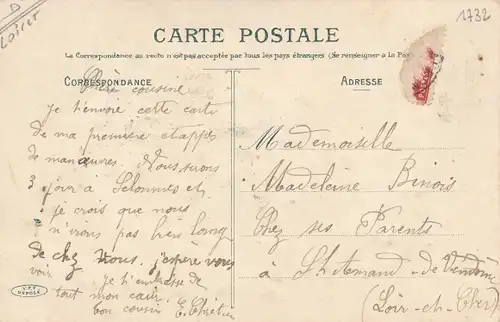 D
Loiret
1732
CARTE POSTALE
La Correspondance au recto n'est pas acceptée par tous les pays étrangers (Se renseigner à la Pos
CORRESPONDANCE
ADRESSE
Chère cousine
je t'envoie cette carte
de ma première étappe
de manœuvres. Nous serons
3 jour à Selommes et
je crois que nous
n'irons pas bien long
de chez vous. j'espère vous
voir je t'embrasse de
tout mon cœur.
ton cousin E. Chrétien
Mademoiselle
Madeleine Binois
Chez ses Parents
à St Amand-de-Vendôme
(Loir-et-Cher)
DÉPOSÉ